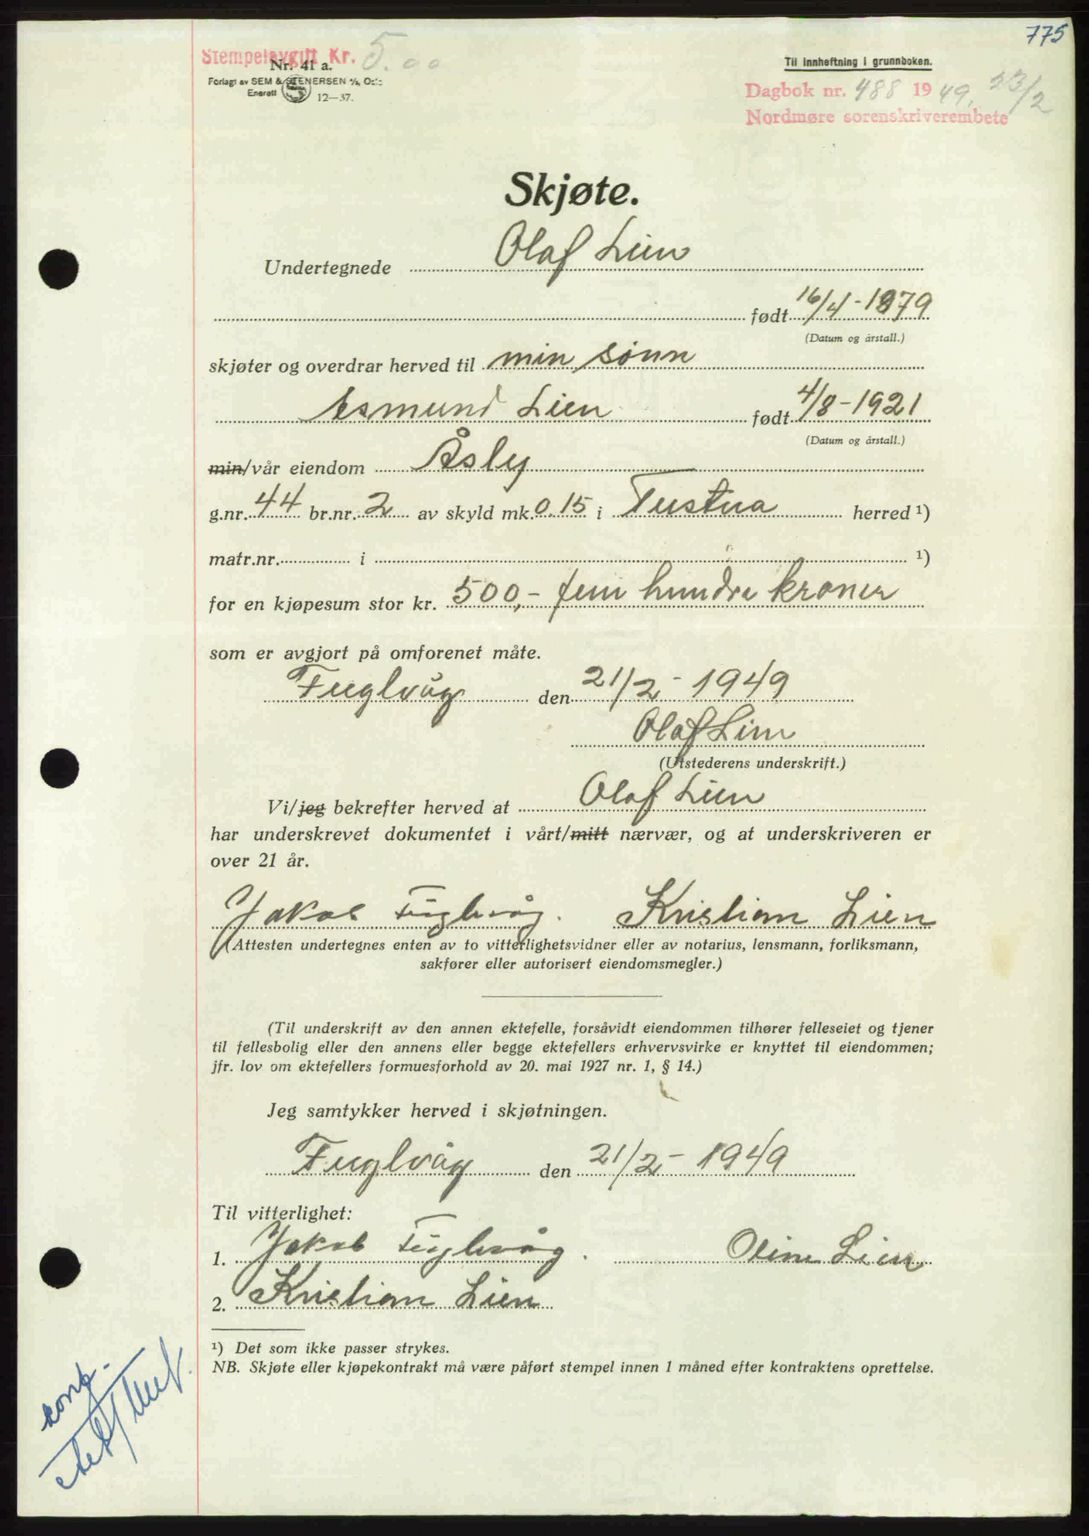 775
Stempelavgift Kr. 5.00
Nr. 41 a.
Forlagt av SEM & STENERSEN A/S, Oslo
Enerett S 12—37.
Til innheftning i grunnboken.
Dagbok nr. 488 1949, 23/2
Nordmøre sorenskriverembete
Skjøte.
Undertegnede Olaf Lien
født 16/4-1879
(Datum og årstall.)
skjøter og overdrar herved til min sønn
Asmund Lien født 4/8-1921
(Datum og årstall.)
min/vår eiendom Åsly
g.nr. 44 br.nr. 2 av skyld mk. 0.15 i Tustna herred ¹)
matr.nr. i ¹)
for en kjøpesum stor kr. 500,- fem hundre kroner
som er avgjort på omforenet måte.
Fuglvåg den 21/2-1949
Olaf Lien
(Utstederens underskrift.)
Vi/jeg bekrefter herved at Olaf Lien
har underskrevet dokumentet i vårt/mitt nærvær, og at underskriveren er
over 21 år.
Jakob Fuglvåg. Kristian Lien
(Attesten undertegnes enten av to vitterlighetsvidner eller av notarius, lensmann, forliksmann,
sakfører eller autorisert eiendomsmegler.)
(Til underskrift av den annen ektefelle, forsåvidt eiendommen tilhører felleseiet og tjener
til fellesbolig eller den annens eller begge ektefellers erhvervsvirke er knyttet til eiendommen;
jfr. lov om ektefellers formuesforhold av 20. mai 1927 nr. 1, § 14.)
Jeg samtykker herved i skjøtningen.
Fuglvåg den 21/2-1949
Til vitterlighet:
1. Jakob Fuglvåg. Oline Lien
2. Kristian Lien
¹) Det som ikke passer strykes.
NB. Skjøte eller kjøpekontrakt må være påført stempel innen 1 måned efter kontraktens oprettelse.
konf.